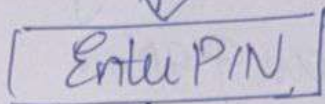 Enter PIN